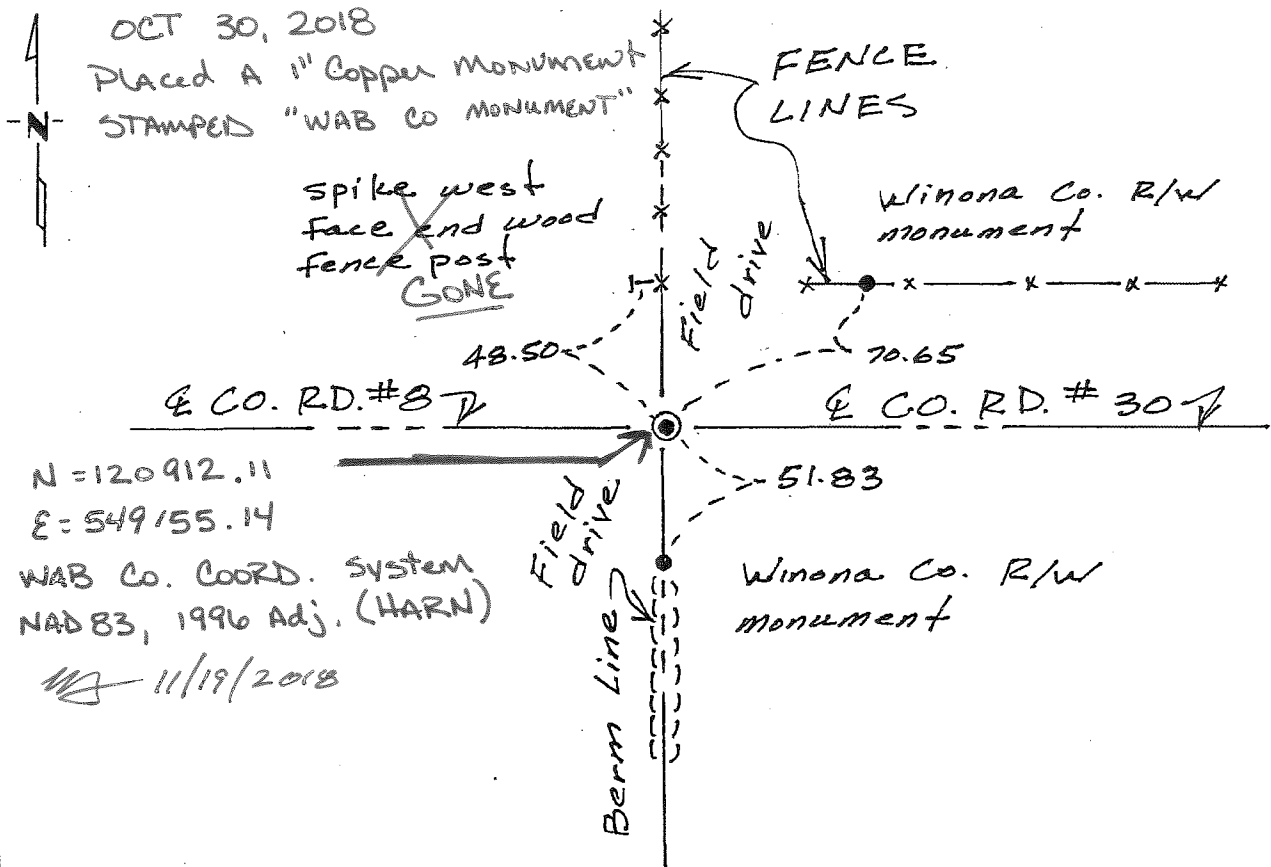 OCT 30, 2018
PLACED A 1" Copper MONUMENT
STAMPED "WAB CO MONUMENT"
N
FENCE
LINES
spike west
face end wood
fence post
GONE
Winona Co. R/W
monument
Field
drive
48.50
70.65
℄ CO. RD. #8
℄ CO. RD. # 30
N = 120912.11
E = 549155.14
WAB CO. COORD. System
NAD 83, 1996 Adj. (HARN)
11/19/2018
51.83
Field
drive
Winona Co. R/W
monument
Berm Line